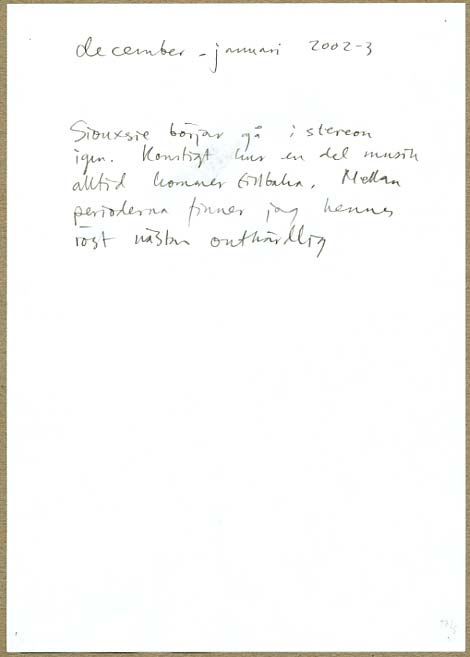 december - januari 2002-3
Siouxsie börjar gå i stereon
igen. Konstigt hur en del musik
alltid kommer tillbaka. Mellan
perioderna finner jag hennes
röst nästan outhärdlig